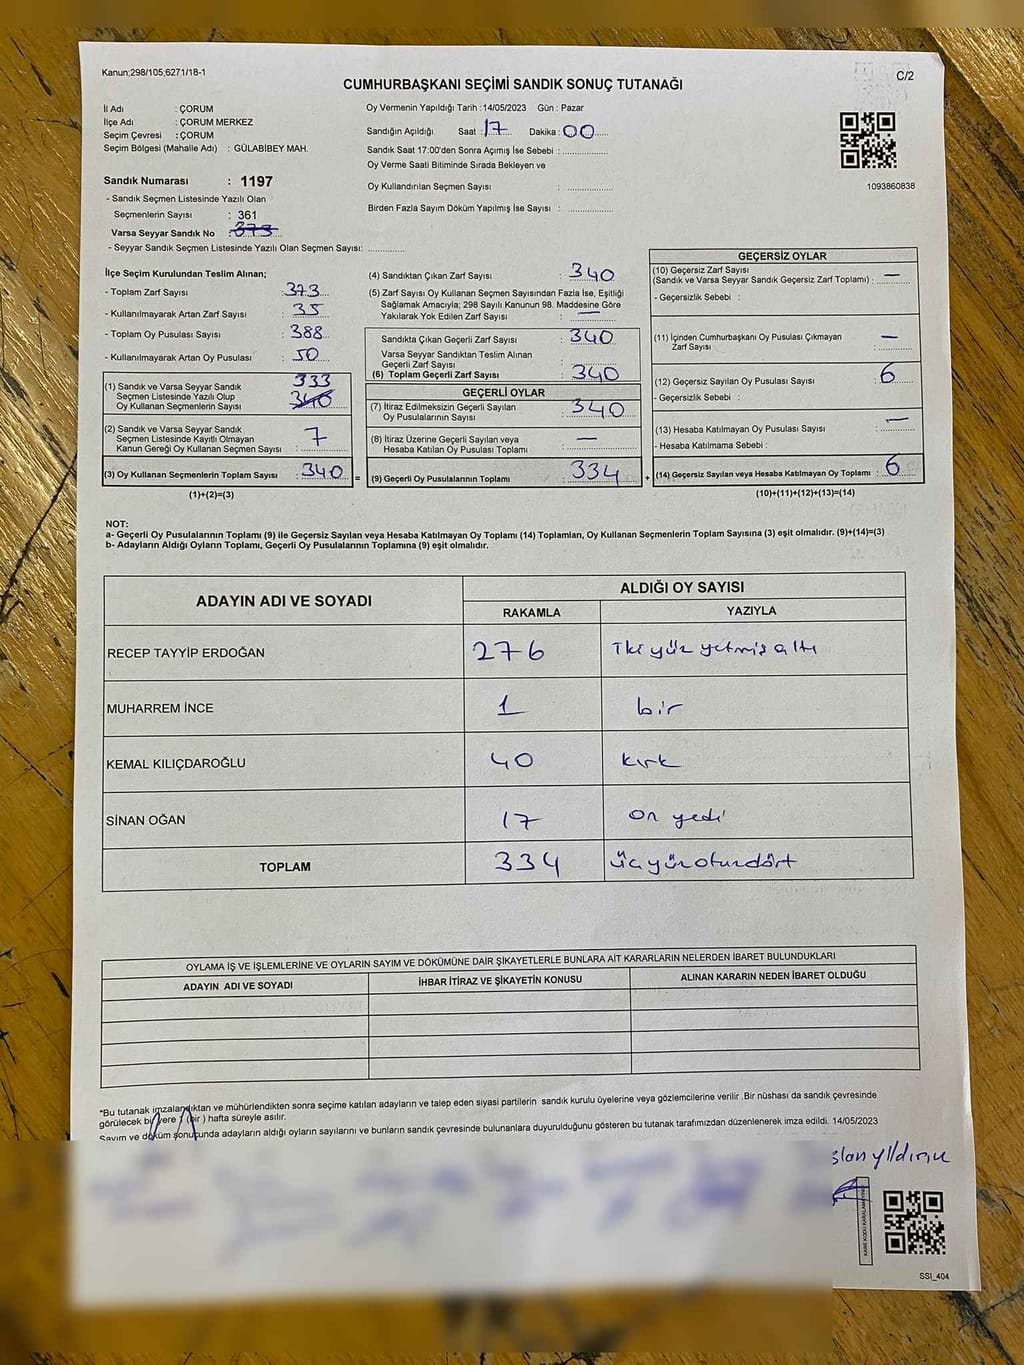 Kanun;298/105;6271/18-1
C/2
CUMHURBAŞKANI SEÇİMİ SANDIK SONUÇ TUTANAĞI
İl Adı : ÇORUM
İlçe Adı : ÇORUM MERKEZ
Seçim Çevresi : ÇORUM
Seçim Bölgesi (Mahalle Adı) : GÜLABİBEY MAH.
Sandık Numarası : 1197
- Sandık Seçmen Listesinde Yazılı Olan
Seçmenlerin Sayısı : 361
Varsa Seyyar Sandık No : 373
- Seyyar Sandık Seçmen Listesinde Yazılı Olan Seçmen Sayısı: ............
Oy Vermenin Yapıldığı Tarih : 14/05/2023 Gün : Pazar
Sandığın Açıldığı Saat : 17 Dakika : 00
Sandık Saat 17:00'den Sonra Açımış İse Sebebi : ............
Oy Verme Saati Bitiminde Sırada Bekleyen ve
Oy Kullandırılan Seçmen Sayısı : ............
Birden Fazla Sayım Döküm Yapılmış İse Sayısı : ............
1093860838
İlçe Seçim Kurulundan Teslim Alınan;
- Toplam Zarf Sayısı : 373
- Kullanılmayarak Artan Zarf Sayısı : 35
- Toplam Oy Pusulası Sayısı : 388
- Kullanılmayarak Artan Oy Pusulası : 50
(1) Sandık ve Varsa Seyyar Sandık 333
Seçmen Listesinde Yazılı Olup 340
Oy Kullanan Seçmenlerin Sayısı
(2) Sandık ve Varsa Seyyar Sandık
Seçmen Listesinde Kayıtlı Olmayan 7
Kanun Gereği Oy Kullanan Seçmen Sayısı
(3) Oy Kullanan Seçmenlerin Toplam Sayısı : 340 =
(1)+(2)=(3)
(4) Sandıktan Çıkan Zarf Sayısı : 340
(5) Zarf Sayısı Oy Kullanan Seçmen Sayısından Fazla İse, Eşitliği
Sağlamak Amacıyla; 298 Sayılı Kanunun 98. Maddesine Göre
Yakılarak Yok Edilen Zarf Sayısı : —
Sandıkta Çıkan Geçerli Zarf Sayısı : 340
Varsa Seyyar Sandıktan Teslim Alınan
Geçerli Zarf Sayısı :
(6) Toplam Geçerli Zarf Sayısı : 340
GEÇERLİ OYLAR
(7) İtiraz Edilmeksizin Geçerli Sayılan : 340
Oy Pusulalarının Sayısı
(8) İtiraz Üzerine Geçerli Sayılan veya : —
Hesaba Katılan Oy Pusulası Toplamı
(9) Geçerli Oy Pusulalarının Toplamı : 334 +
GEÇERSİZ OYLAR
(10) Geçersiz Zarf Sayısı
(Sandık ve Varsa Seyyar Sandık Geçersiz Zarf Toplamı) : —
- Geçersizlik Sebebi :
(11) İçinden Cumhurbaşkanı Oy Pusulası Çıkmayan : —
Zarf Sayısı
(12) Geçersiz Sayılan Oy Pusulası Sayısı : 6
- Geçersizlik Sebebi :
(13) Hesaba Katılmayan Oy Pusulası Sayısı : —
- Hesaba Katılmama Sebebi :
(14) Geçersiz Sayılan veya Hesaba Katılmayan Oy Toplamı : 6
(10)+(11)+(12)+(13)=(14)
NOT:
a- Geçerli Oy Pusulalarının Toplamı (9) ile Geçersiz Sayılan veya Hesaba Katılmayan Oy Toplamı (14) Toplamları, Oy Kullanan Seçmenlerin Toplam Sayısına (3) eşit olmalıdır. (9)+(14)=(3)
b- Adayların Aldığı Oyların Toplamı, Geçerli Oy Pusulalarının Toplamına (9) eşit olmalıdır.
ADAYIN ADI VE SOYADI
ALDIĞI OY SAYISI
RAKAMLA YAZIYLA
RECEP TAYYİP ERDOĞAN 276 İki yüz yetmiş altı
MUHARREM İNCE 1 bir
KEMAL KILIÇDAROĞLU 40 kırk
SİNAN OĞAN 17 on yedi
TOPLAM 334 üç yüz otuz dört
OYLAMA İŞ VE İŞLEMLERİNE VE OYLARIN SAYIM VE DÖKÜMÜNE DAİR ŞİKAYETLERLE BUNLARA AİT KARARLARIN NELERDEN İBARET BULUNDUKLARI
ADAYIN ADI VE SOYADI İHBAR İTİRAZ VE ŞİKAYETİN KONUSU ALINAN KARARIN NEDEN İBARET OLDUĞU
*Bu tutanak imzalandıktan ve mühürlendikten sonra seçime katılan adayların ve talep eden siyasi partilerin sandık kurulu üyelerine veya gözlemcilerine verilir .Bir nüshası da sandık çevresinde
görülecek bir yere 7 (bir ) hafta süreyle asılır.
Sayım ve döküm sonucunda adayların aldığı oyların sayılarını ve bunların sandık çevresinde bulunanlara duyurulduğunu gösteren bu tutanak tarafımızdan düzenlenerek imza edildi. 14/05/2023
SSI_404